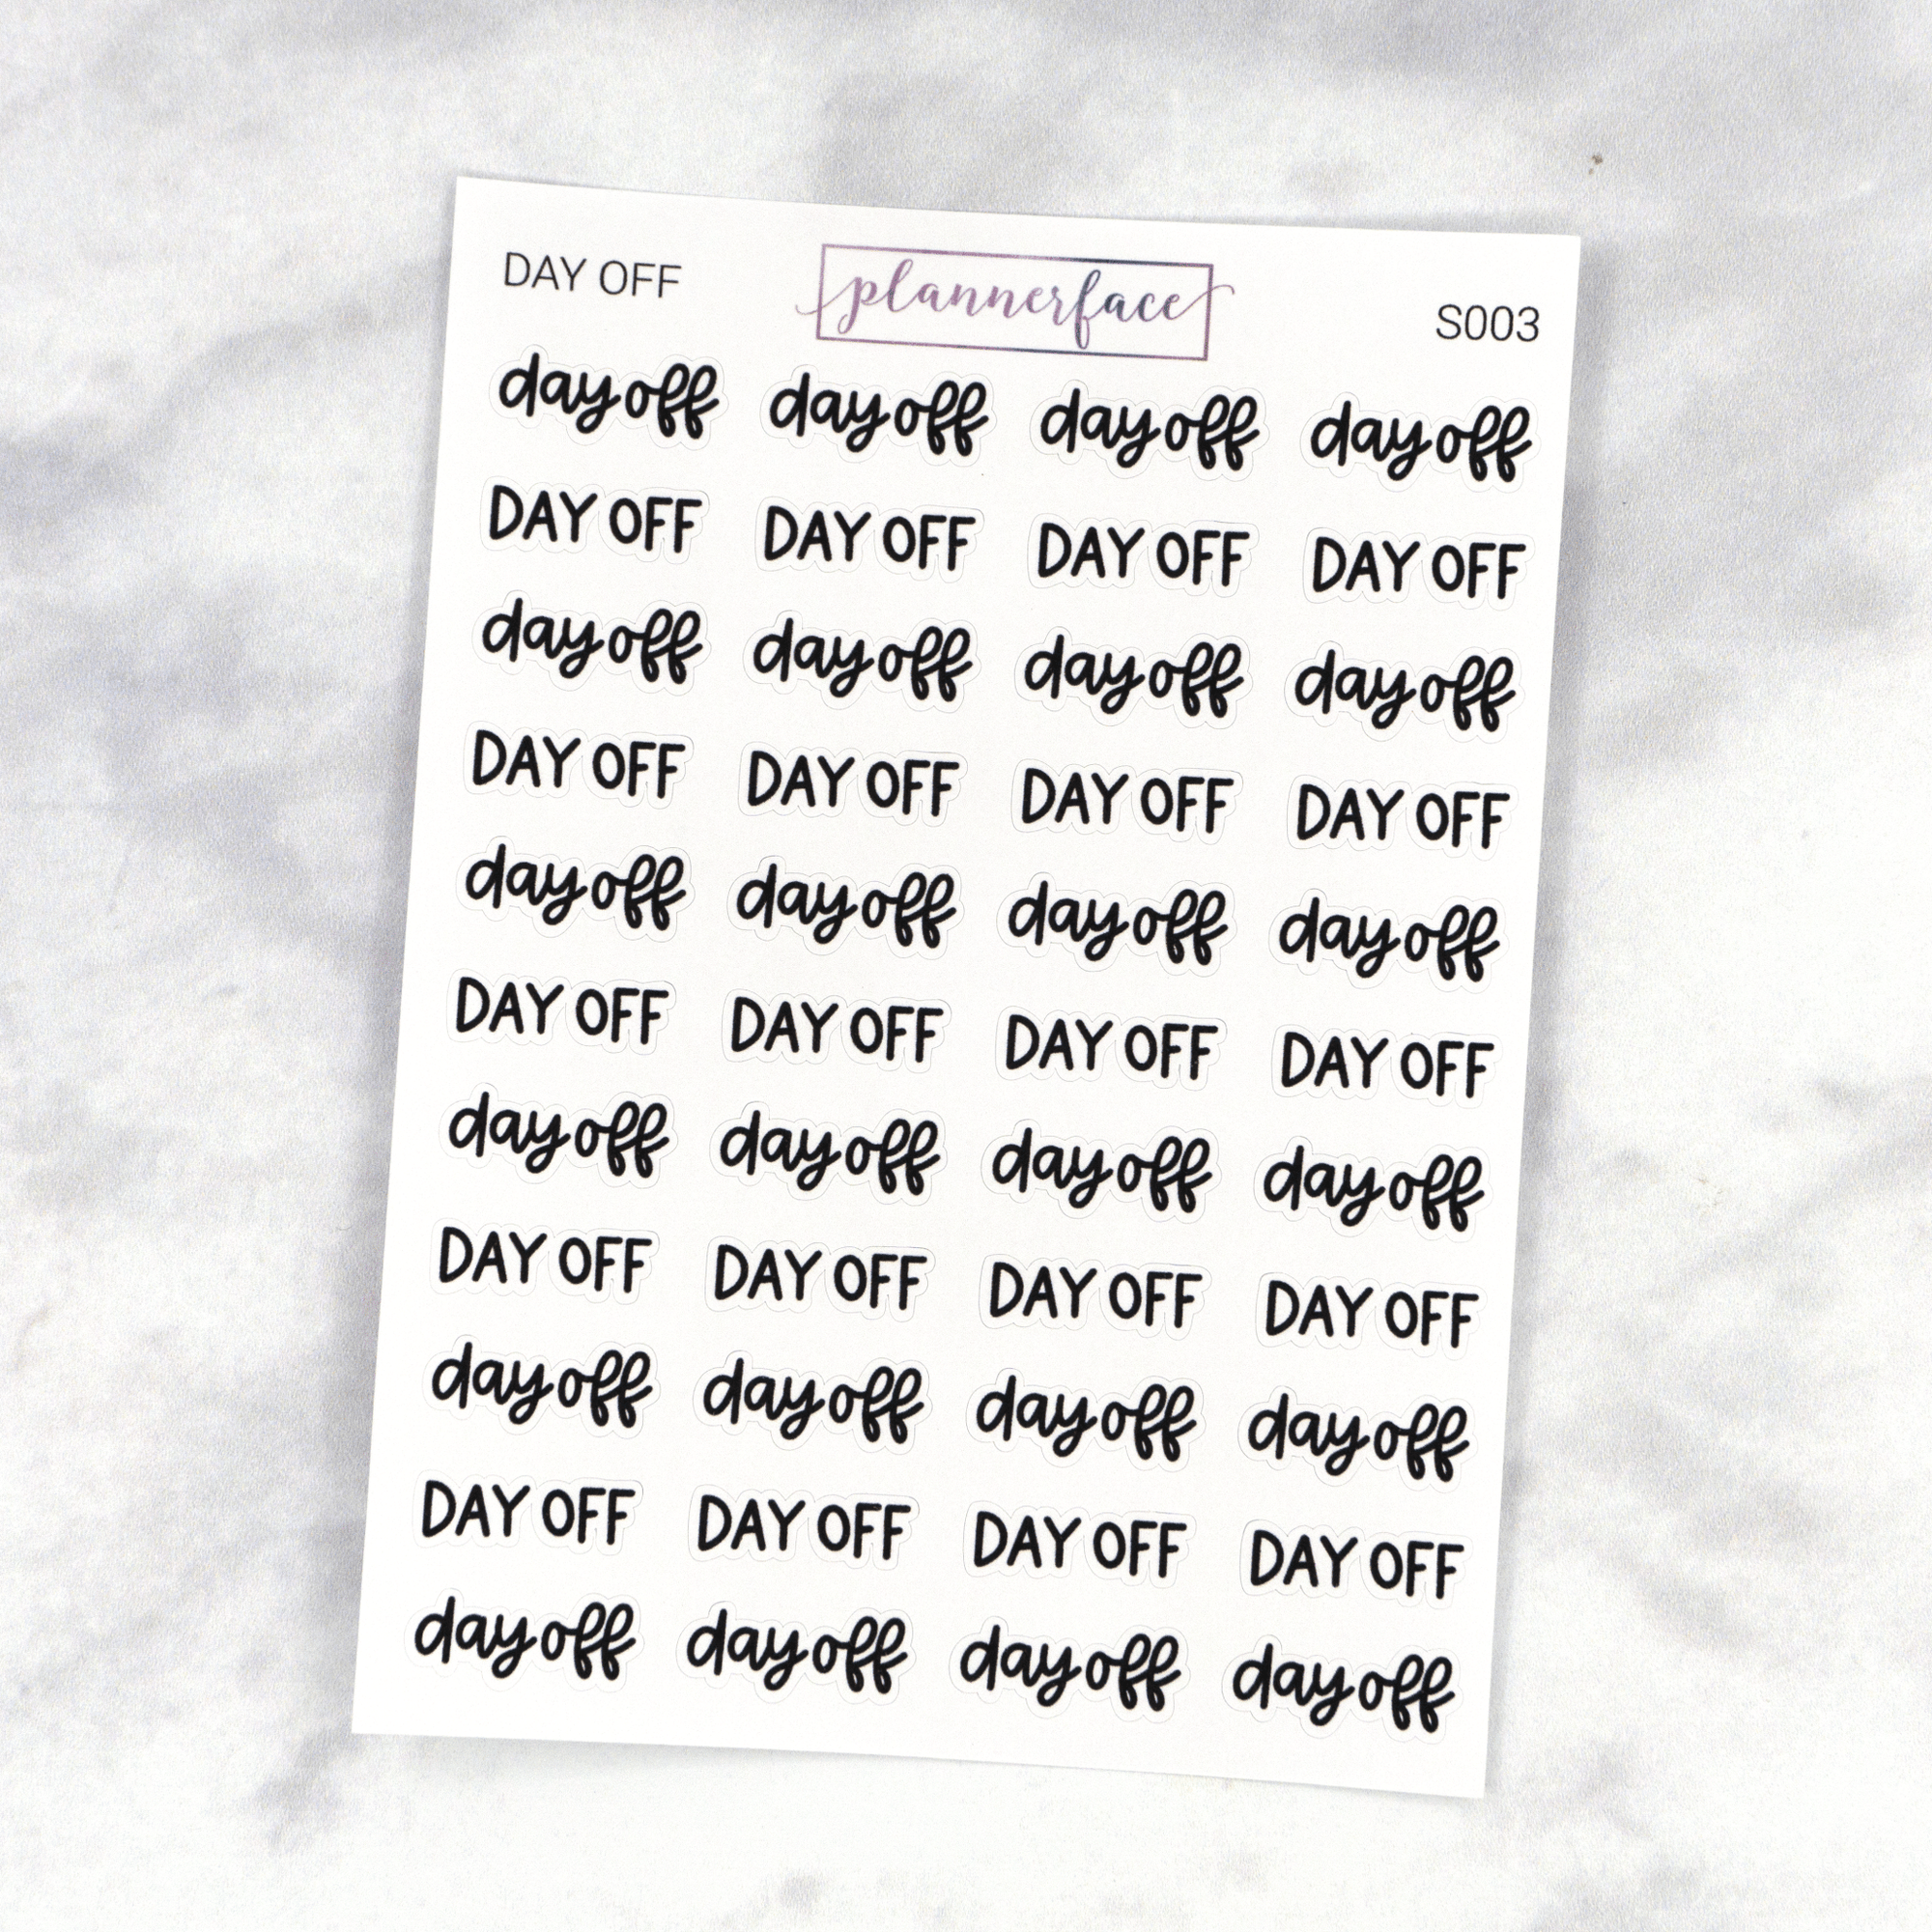 DAY OFF plannerface S003
day off day off day off day off
DAY OFF DAY OFF DAY OFF DAY OFF
day off day off day off day off
DAY OFF DAY OFF DAY OFF DAY OFF
day off day off day off day off
DAY OFF DAY OFF DAY OFF DAY OFF
day off day off day off day off
DAY OFF DAY OFF DAY OFF DAY OFF
day off day off day off day off
DAY OFF DAY OFF DAY OFF DAY OFF
day off day off day off day off